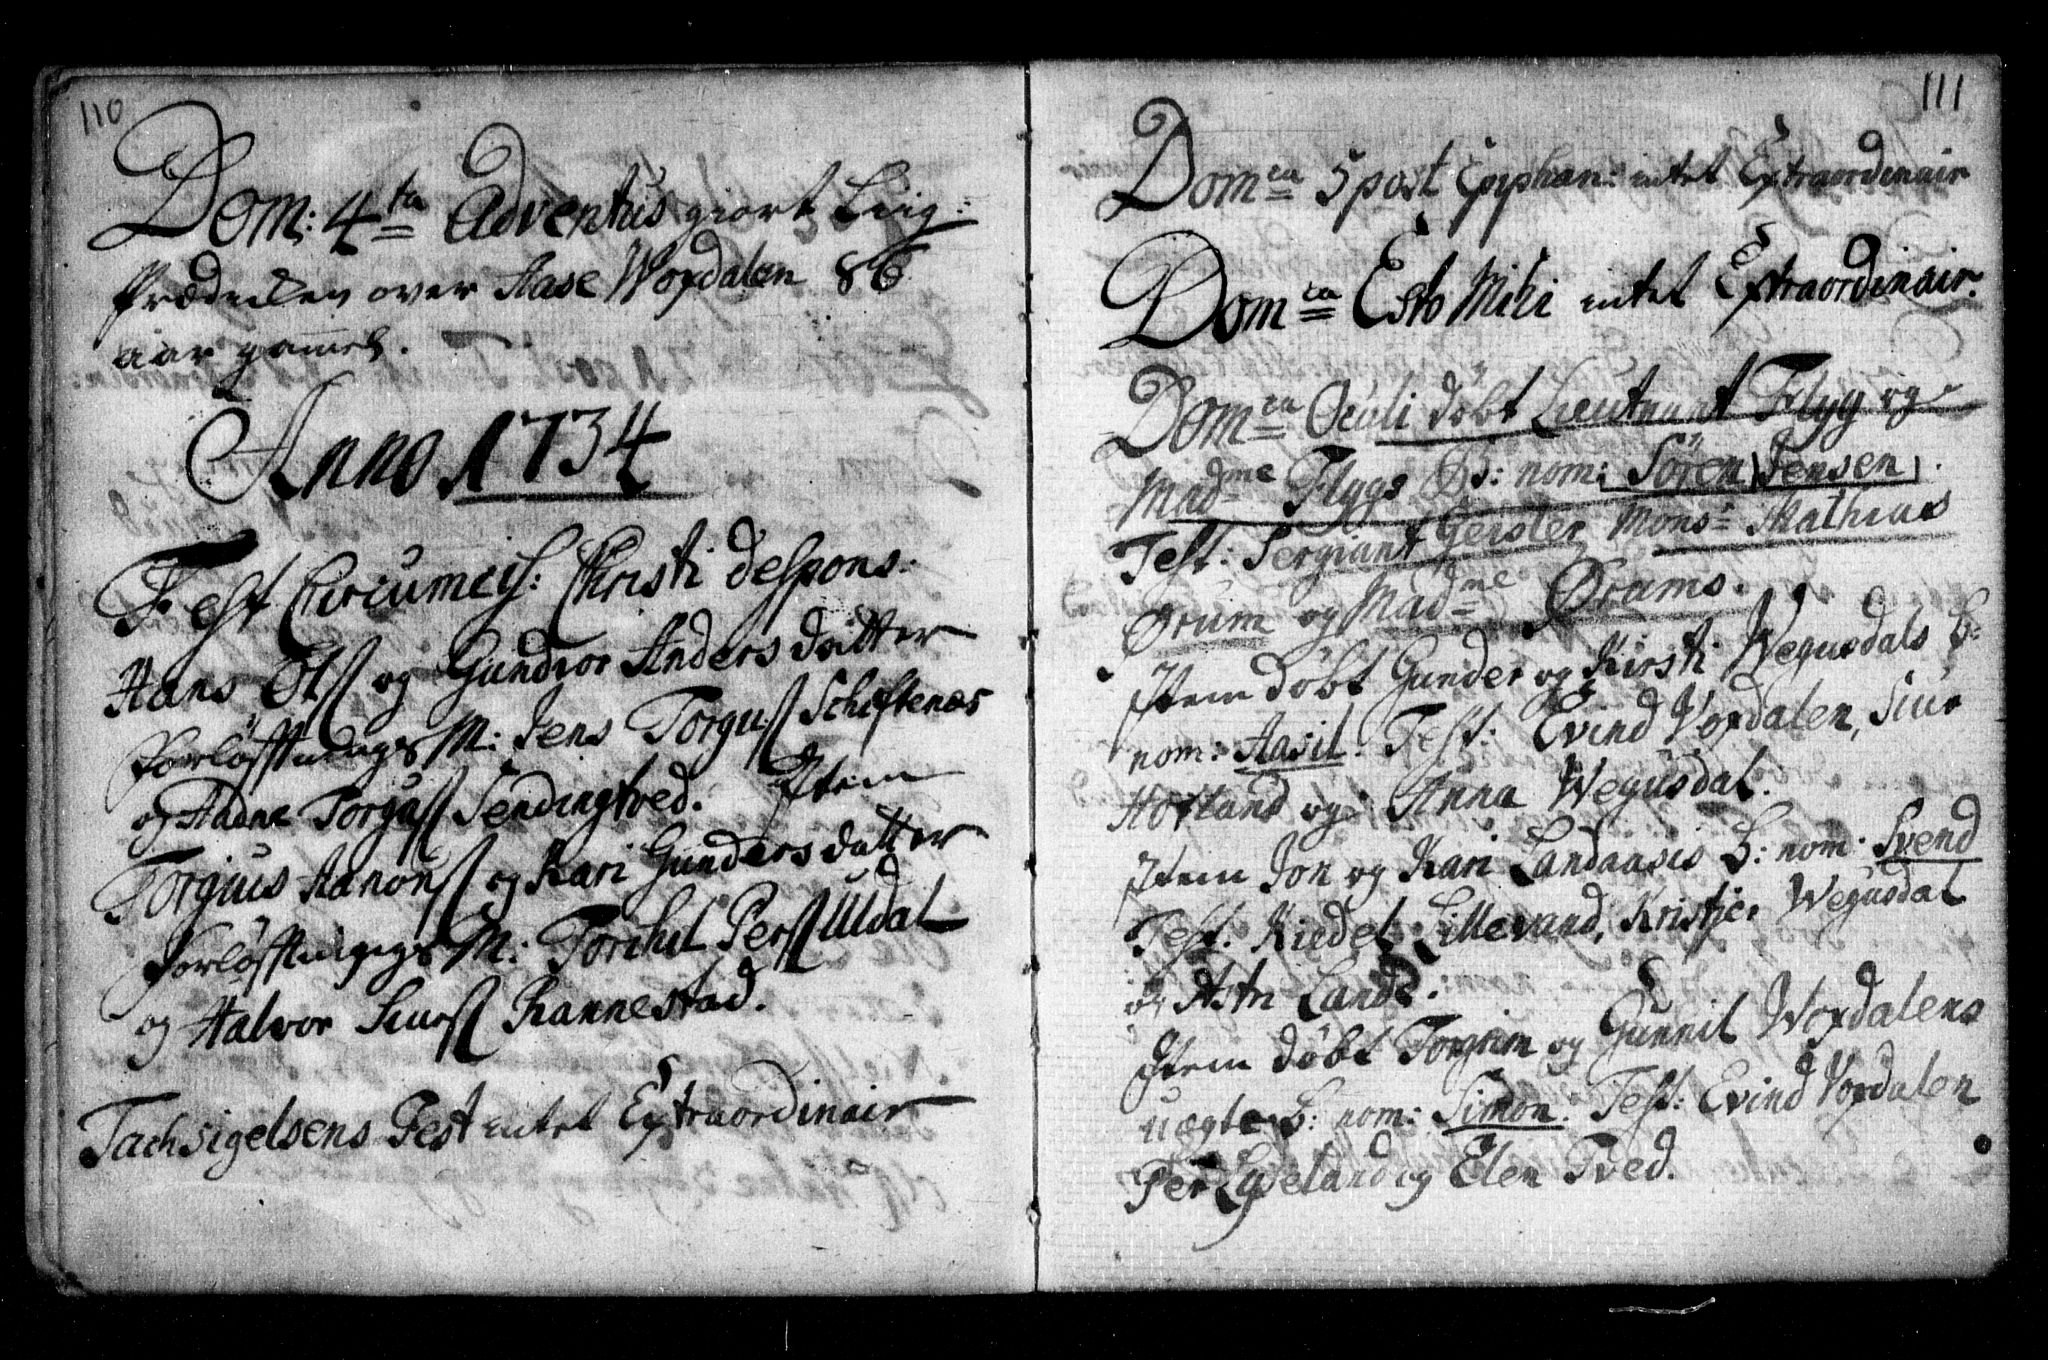 110
Dom: 4ta Adventus giort Liig-
Prædicken over Aase Woxdalen 86
aar gamel.
Anno 1734
Fest Circumcis: Christi despons:
Hans Ols: og Gundvor Anders datter
Forløfftnings M: Jens Torgus: Schiftenæs
og Aadne Torgus: Sendingtved. Item
Torgius Aanons: og Kari Gunders datter
Forløfftnings M: Torchil Pers: Uldal
og Halvor Siurs: Rannestad.
Tachsigelsens Fest intet Extraordinair
111
Domca 5 post Epiphan: intet Extraordinair
Domca Esto Mihi intet Extraordinair.
Domca Oculi döbt Lieutnant Flyg og
Madme Flygs B: nom: Sören Jensen.
Test: Sergiant Geisler, Mons: Mathias
Ørum og Madme Ørums.
Item döbt Gunder og Kirsti Wegusdals B:
nom: Aasil. Test: Evind Voxdalen, Siur
Hovland og Anna Wegusdal.
Item Jon og Kari Landaasis B: nom. Svend
Test: Kiedel Lillevand, Kristje Wegusdal
og Astri Lande.
Item döbt Torgrim og Gunnil Woxdalens
uægte B: nom: Simon. Test: Evind Voxdalen
Per Lyseland og Elen Tved.